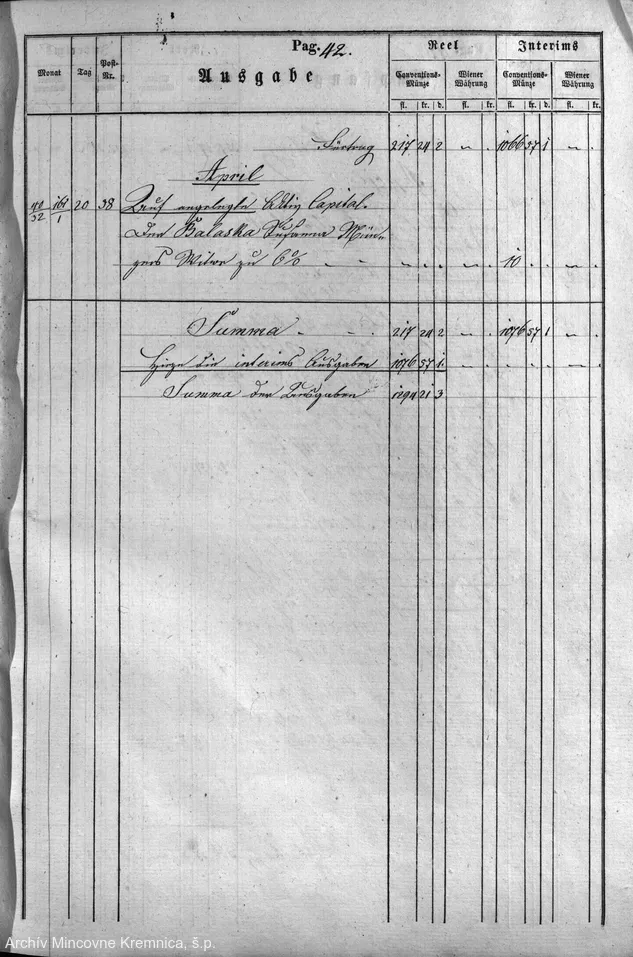 Pag. 42.
Ausgabe
Reel
Interims
Monat
Tag
Post-Nr.
Conventions-Münze
Wiener Währung
Conventions-Münze
Wiener Währung
fl. kr. d. fl. kr. fl. kr. d. fl. kr.
Fürtrag 217 24 2 " . 1066 57 1 " .
April
20 38 Auf angelegte Aktiv Capital.
Der Balaska Susanna Mün-
zers Witwe zu 6% 10 . .
Summa 217 24 2 " . 1076 57 1 " .
Hiezu die interims Ausgaben 1076 57 1
Summa der Ausgaben 1294 21 3
Archív Mincovne Kremnica, š.p.